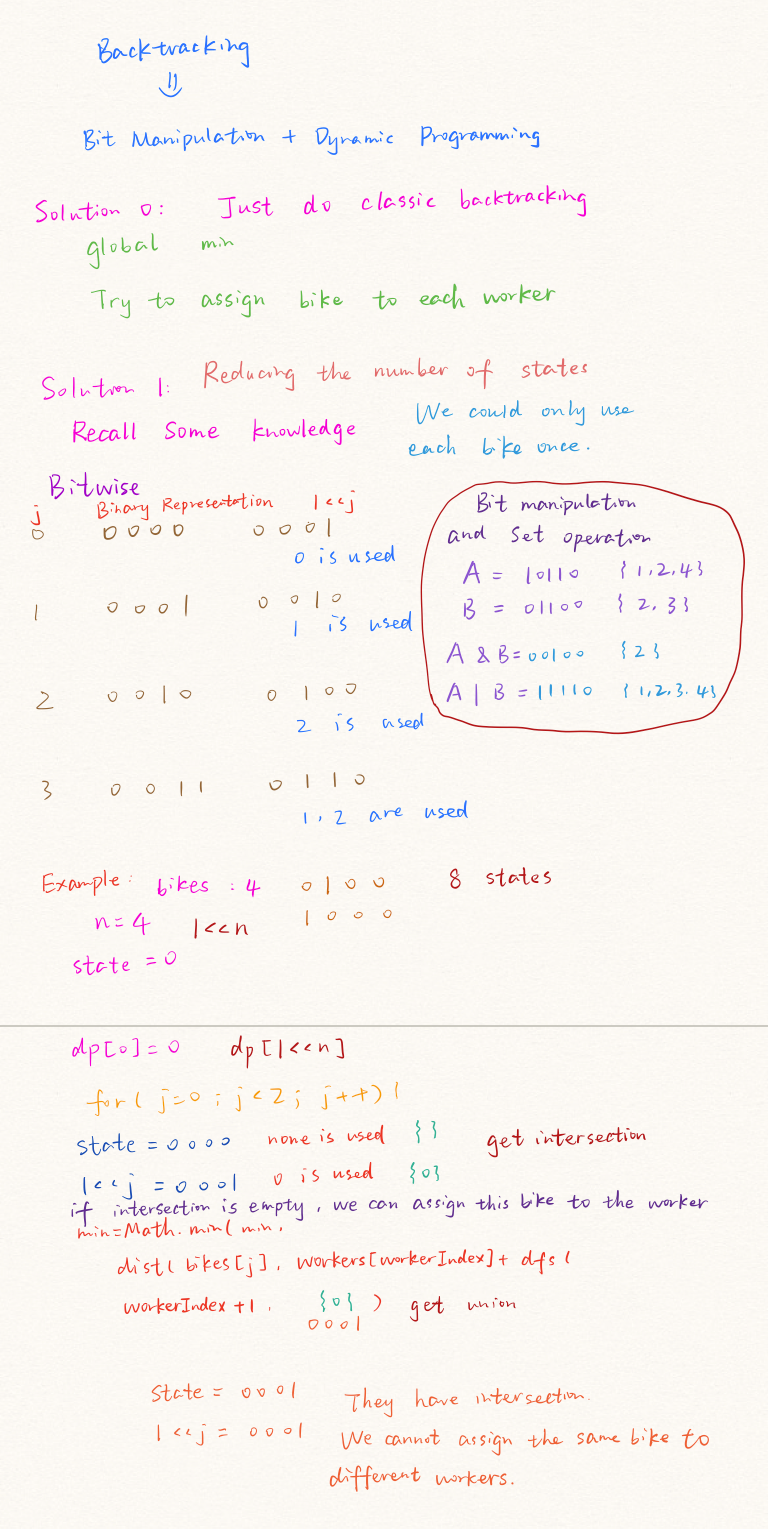 Backtracking
⇓
Bit Manipulation + Dynamic Programming
Solution 0: Just do classic backtracking
global min
Try to assign bike to each worker
Solution 1: Reducing the number of states
Recall Some knowledge
We could only use
each bike once.
Bitwise
j Binary Representation 1<<j
0 0000 0001
0 is used
1 0001 0010
1 is used
2 0010 0100
2 is used
3 0011 0110
1, 2 are used
Bit manipulation
and Set operation
A = 10110 {1,2,4}
B = 01100 {2,3}
A & B=00100 {2}
A | B = 11110 {1,2,3.4}
Example: bikes : 4 0100 8 states
n=4 1<<n 1000
state = 0
dp[0]=0 dp[1<<n]
for( j=0 ; j<2 ; j++) {
State = 0000 none is used { } get intersection
1<<j = 0001 0 is used {0}
if intersection is empty, we can assign this bike to the worker
min=Math.min( min,
dist( bikes[j], workers[workerIndex]+ dfs (
workerIndex +1, {0} ) get union
0001
State = 0001 They have intersection.
1<<j = 0001 We cannot assign the same bike to
different workers.